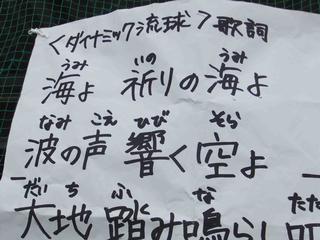 ＜ダイナミック琉球＞歌詞
うみ いの うみ
海よ 祈りの海よ
なみ こえ ひび そら
波の声 響く空よ
だいち ふ な
大地 踏み鳴らし